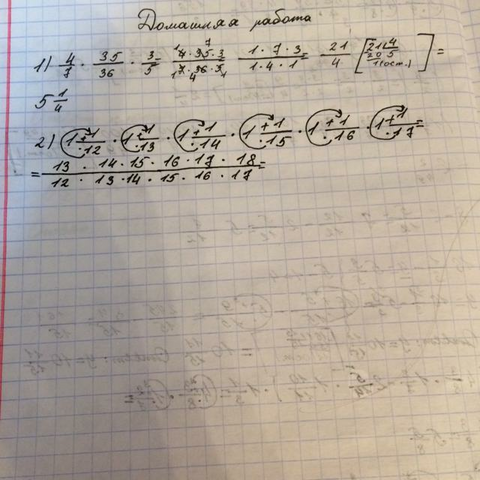 Домашняя работа
1) 4/7 · 35/36 · 3/5 = 4·35·3/7·36·5 = 1·7·3/1·4·1 = 21/4 [21:4 20 5 1(ост.)] =
5 1/4
2) 1+1/·12 · 1+1/·13 · 1+1/·14 · 1+1/·15 · 1+1/·16 · 1+1/·17 =
= 13 · 14 · 15 · 16 · 17 · 18/12 · 13 · 14 · 15 · 16 · 17 =